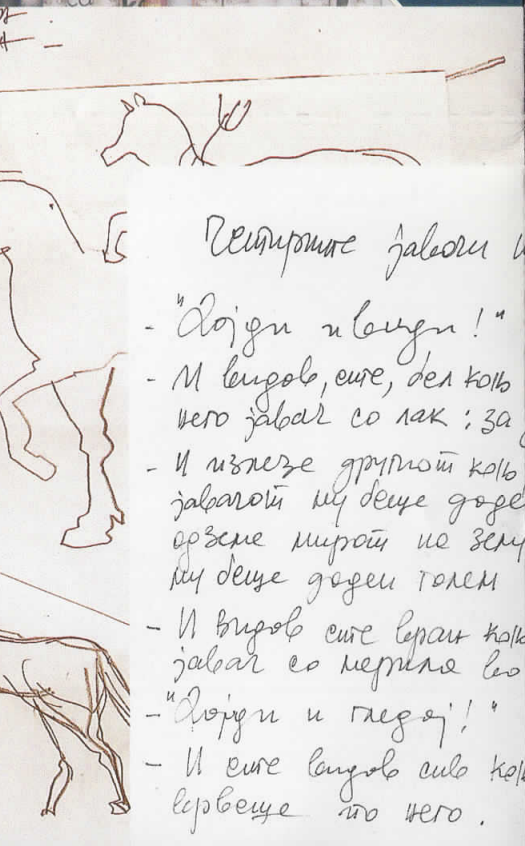 Четирите јавачи
- "Дојди и види!"
- И видов, ете, бел коњ
него јавач со лак: за
- И излезе другиот коњ
јавачот му беше даде
одземе мирот на зем
му беше даден голем
- И видов ете вран коњ
јавач со мерила во
- "Дојди и гледај!"
- И ете видов сив коњ
врвеше по него.